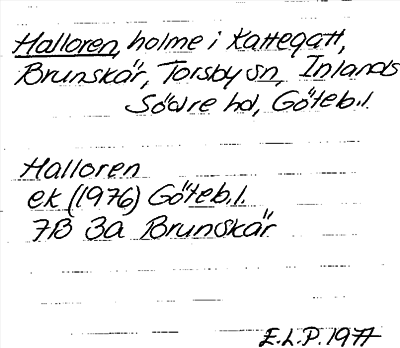 Halloren, holme i Kattegatt,
Brunskär, Torsby sn, Inlands
Södre hd, Göteb.l.
Halloren
ek (1976) Göteb.l.
7B 3a Brunskär
E.L.P. 1977